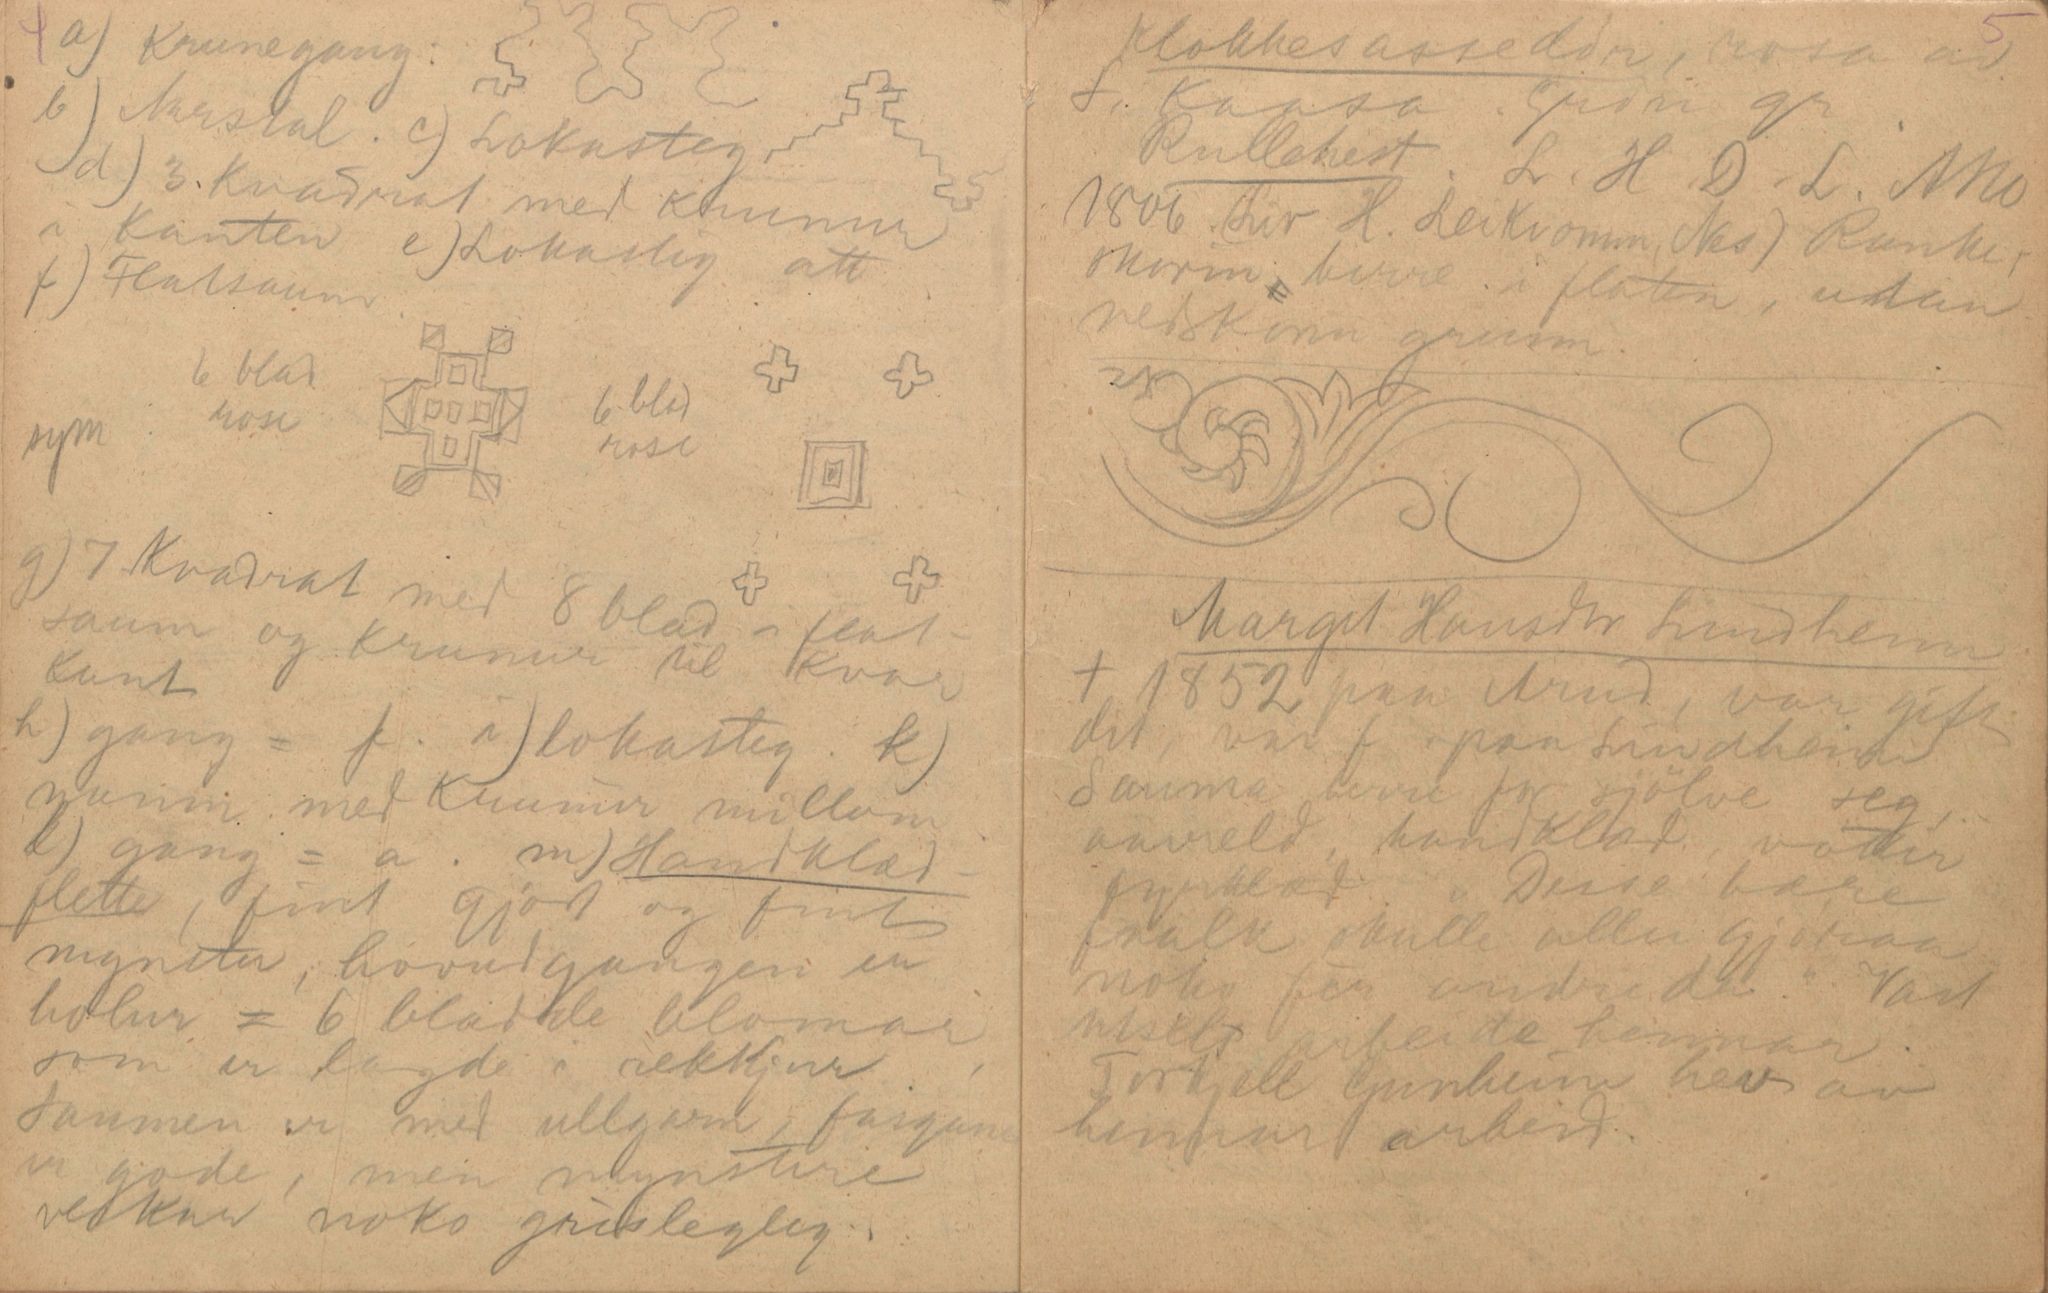 4
a) Krunegang:
b) Nerstal. c) Lokasteg
d) 3 Kvadrat med Krunur
i Kanten e) Lokasteg att
f) Flatsaum.
6 blad
rose
6 blad
rose
sym
g) 7 Kvadrat med 8 blad i flat-
saum og Krunur til Kvar
Kant
h) gang = f. i) lokasteg. k)
med Krunur millom
l) gang = a. m) Handklæd-
flette, fint gjört og fint
mynster, hovudgangen er
holur = 6 bladde blomar,
som er lagde i rekkjur.
Saumen er med ullgarn, fargane
er gode, men mynstre
verkar noko grislegleg.
5
Klokkesassedör, rosa av
L. Kaasa. Grön gr
Rullehest. L. H. D. L. Año
1806. Liv H. Leikvomm, Nes) Ranke,
skorin berre i flaten, utan
nedskorin grunn.
Margit Hansdtr Lindheim
† 1852 paa Arud, var gift
der, var f. paa Lindheim
Sauma berre for sjölve seg,
aavreld, handklæd, vottir
fyrklæd. " Desse bære
fwalk skulle aller gjöraa
noko fer andre da." Vart
utselt arbeide hennar.
Torkjell Gunheim hev av
hennar arbeid.